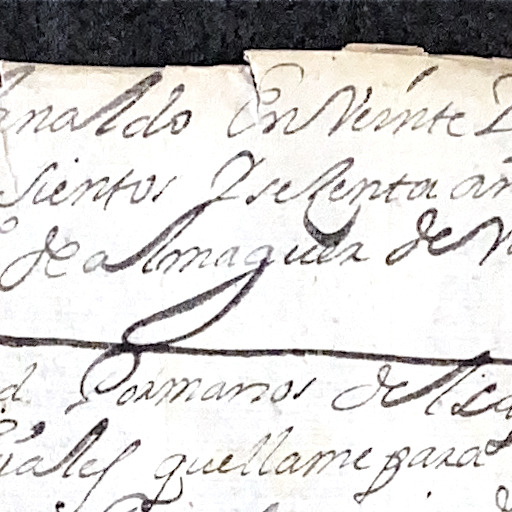 naldo En Veinte
sientos Y sesenta añ
de almaguer de
d Por manos de
ales que llame para